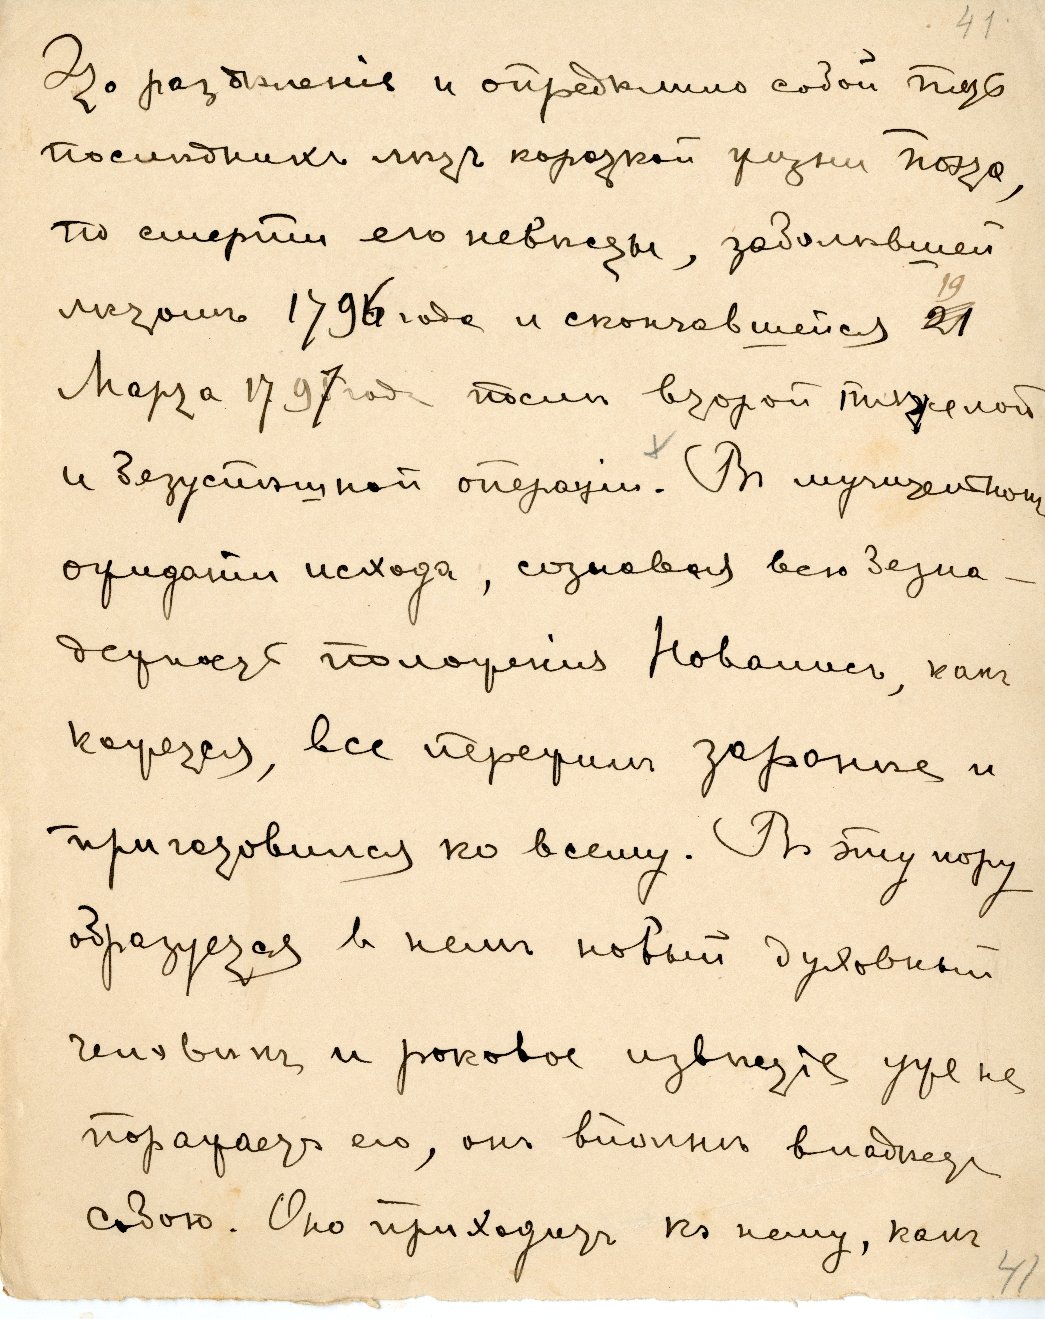 41
Это раздѣленіе и опредѣлило собой путь
послѣднихъ лѣтъ короткой жизни поэта,
по смерти его невѣсты, заболѣвшей
лѣтомъ 1796 года и скончавшейся 21 19
Марта 1797 года послѣ второй тяжелой
и безуспѣшной операціи. Въ мучительномъ
ожиданіи исхода, сознавая всю безна-
дежность положенія Новалисъ, какъ
кажется, все пережилъ заранѣе и
приготовился ко всему. Въ эту пору
образуется въ немъ новый духовный
человѣкъ и роковое извѣстіе уже не
поражаетъ его, онъ вполнѣ владѣетъ
собою. Оно приходитъ къ нему, какъ
41